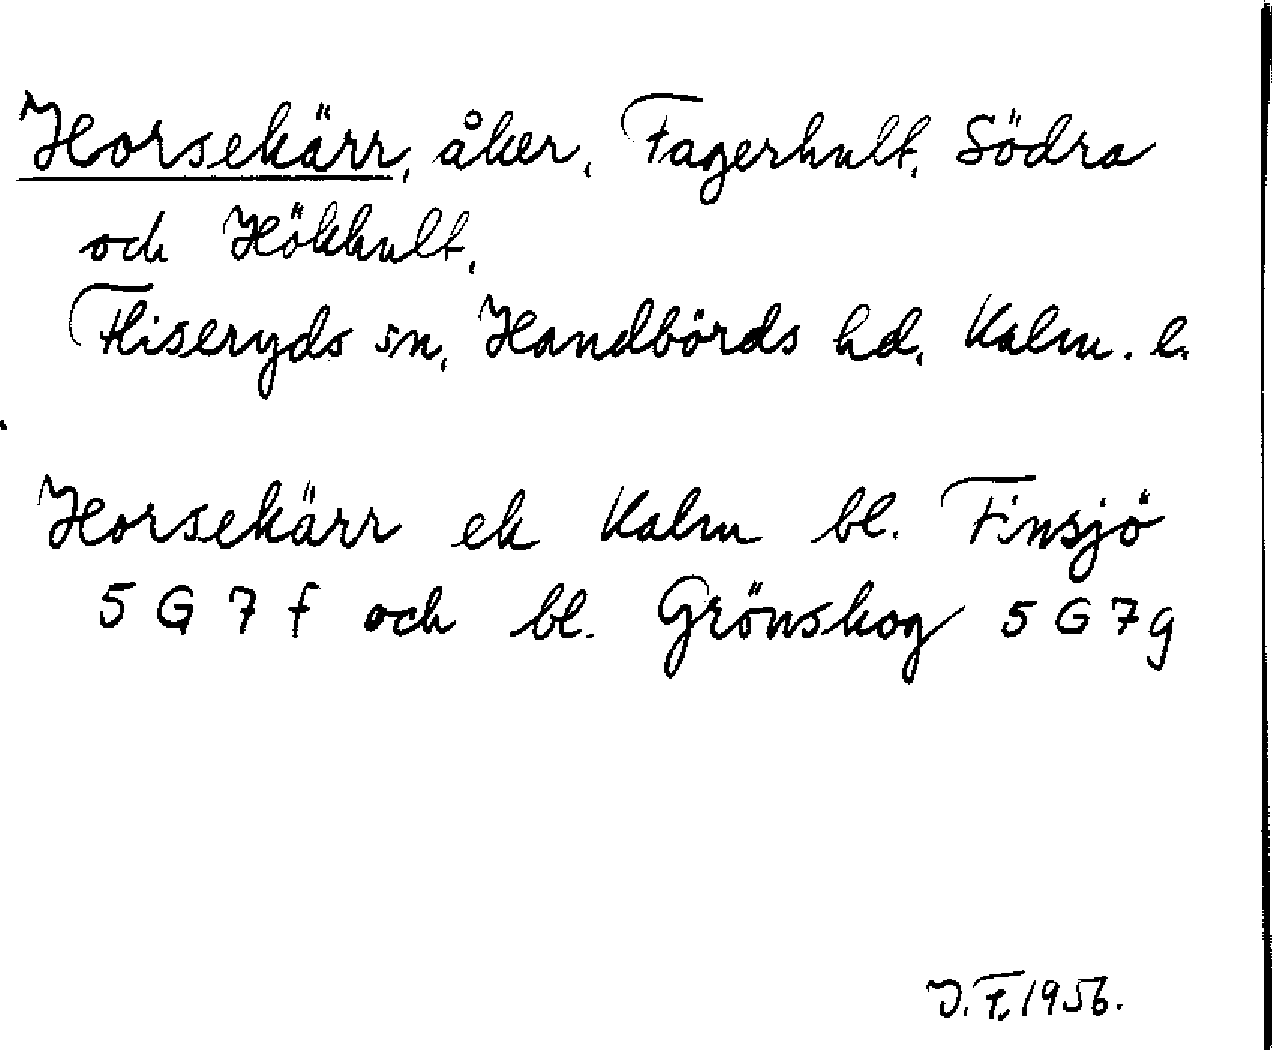 Horsekärr, åker, Fagerhult, Södra
och Hökhult,
Fliseryds sn, Handbörds hd, Kalm. l.
Horsekärr ek Kalm bl. Finsjö
5 G 7 f och bl. Grönskog 5 G 7 g
J. F, 1956.